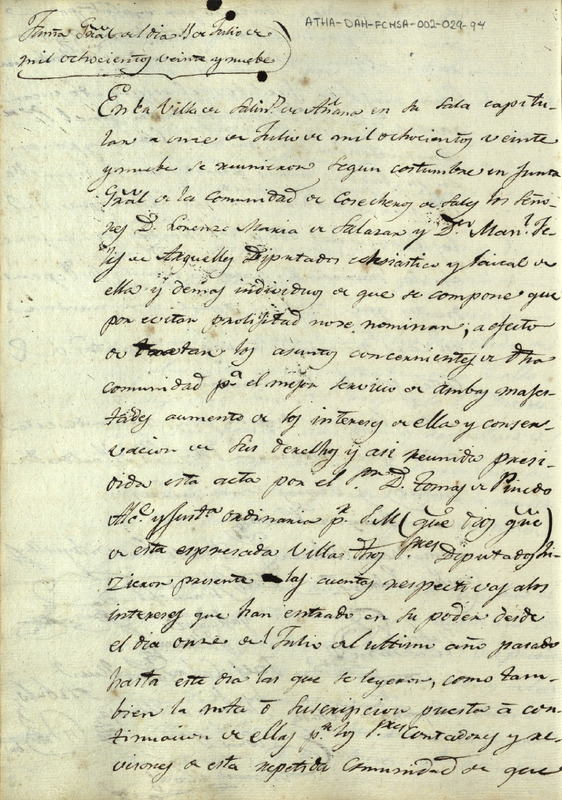 ATHA-DAH-FCHSA-002-029-94
Junta Gral del dia 11 de Julio de
mil ochocientos veinte y nuebe
En la Villa de Salins de Añana en su sala capitu-
lar a once de Julio de mil ochocientos veinte
y nuebe se reunieron segun costumbre en Junta
Gral de la Comunidad de Cosecheros de Sales los Seño-
res D. Lorenzo Maria de Salazar y Dn Manl Fe-
lis de Arguelles Diputados eclesiastico y laical de
ella y demas individuos de que se compone que
por evitar prolijitad no se nominan; a efecto
de tratar los asuntos concernientes de dha
comunidad pa el mejor servicio de ambas majes-
tades aumento de los intereses de ella y conser-
vacion de sus derechos y asi reunida presi-
dida esta acta por el Sr D. Tomas de Pinedo
Alce y Justa ordinaria pr S.M (que Dios gue)
de esta espresada Villa dhos Sres Diputados hi-
zieron presente las cuentas respectivas a los
intereses que han entrado en su poder desde
el dia once de Julio del ultimo año pasado
hasta este dia las que se leyeron, como tam-
bien la nota o suscripcion puesta a con-
tinuacion de ellas pr los Sres Contadores y re-
visores de esta repetida Comunidad de que